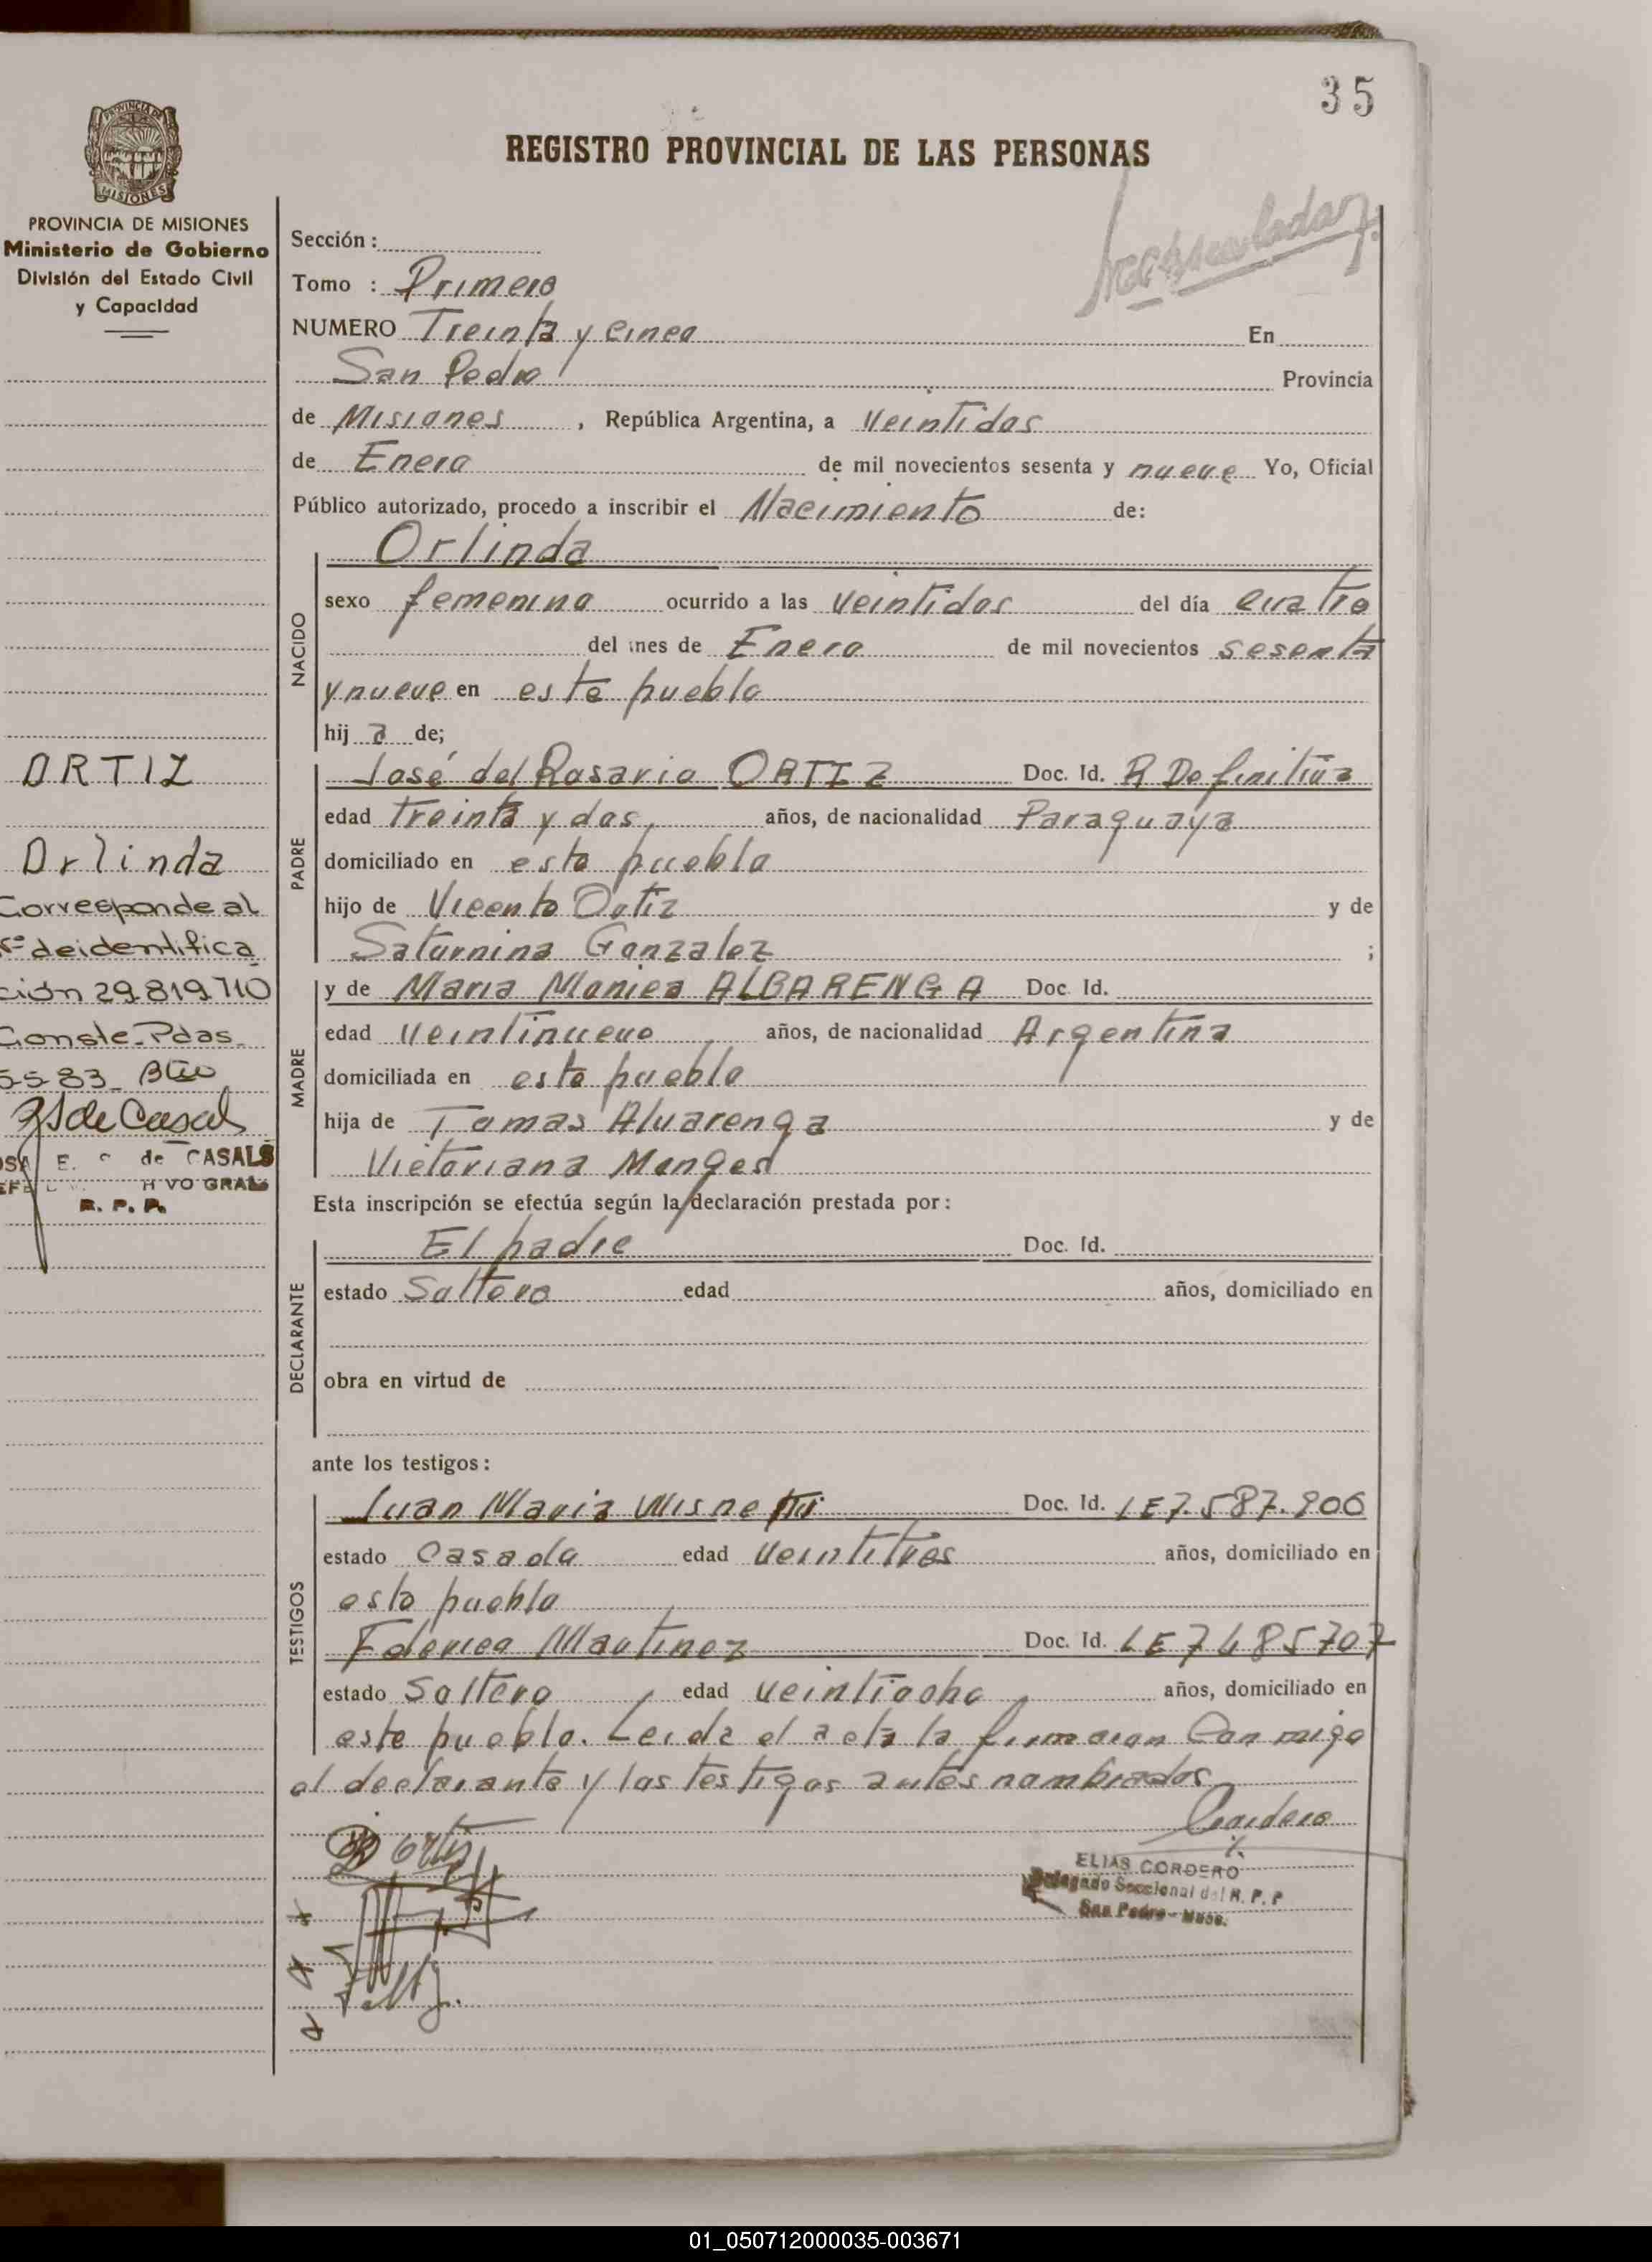 35
REGISTRO PROVINCIAL DE LAS PERSONAS
PROVINCIA DE MISIONES
MISIONES
PROVINCIA DE MISIONES
Ministerio de Gobierno
División del Estado Civil
y Capacidad
ORTIZ
Orlinda
Corresponde al
Nº de identifica
ción 29.819.710
Conste. Pdas.
5-5-83
de Casals
E. de CASALS
VO GRAL
R. P. P.
Sección :
Tomo : Primero
NUMERO Treinta y cinco En
San Pedro Provincia
de Misiones , República Argentina, a Veintidos
de Enero de mil novecientos sesenta y nueve Yo, Oficial
Público autorizado, procedo a inscribir el Nacimiento de:
NACIDO
Orlinda
sexo femenino ocurrido a las veintidos del día cuatro
del mes de Enero de mil novecientos sesenta
y nueve en este pueblo
hij a de;
PADRE
José del Rosario ORTIZ Doc. Id. R Definitiva
edad treinta y dos años, de nacionalidad Paraguaya
domiciliado en este pueblo
hijo de Vicente Ortiz y de
Saturnina Gonzalez ;
MADRE
y de Maria Monica ALBARENGA Doc. Id.
edad veintinueve años, de nacionalidad Argentina
domiciliada en este pueblo
hija de Tomas Alvarenga y de
Victoriana Monges
Esta inscripción se efectúa según la declaración prestada por :
DECLARANTE
El padre Doc. Id.
estado Soltero edad años, domiciliado en
obra en virtud de
ante los testigos :
TESTIGOS
Juan Maria Doc. Id. LE 7.587.906
estado Casado edad veintitres años, domiciliado en
este pueblo
Federico Martinez Doc. Id. LE 7485707
estado Soltero edad veintiocho años, domiciliado en
este pueblo. Leida el acta la firmaran Conmigo
el declarante y los testigos antes nombrados
Cordero
ELIAS CORDERO
Delegado Seccional del R. P. P
San Pedro - Mnes.
01_050712000035-003671